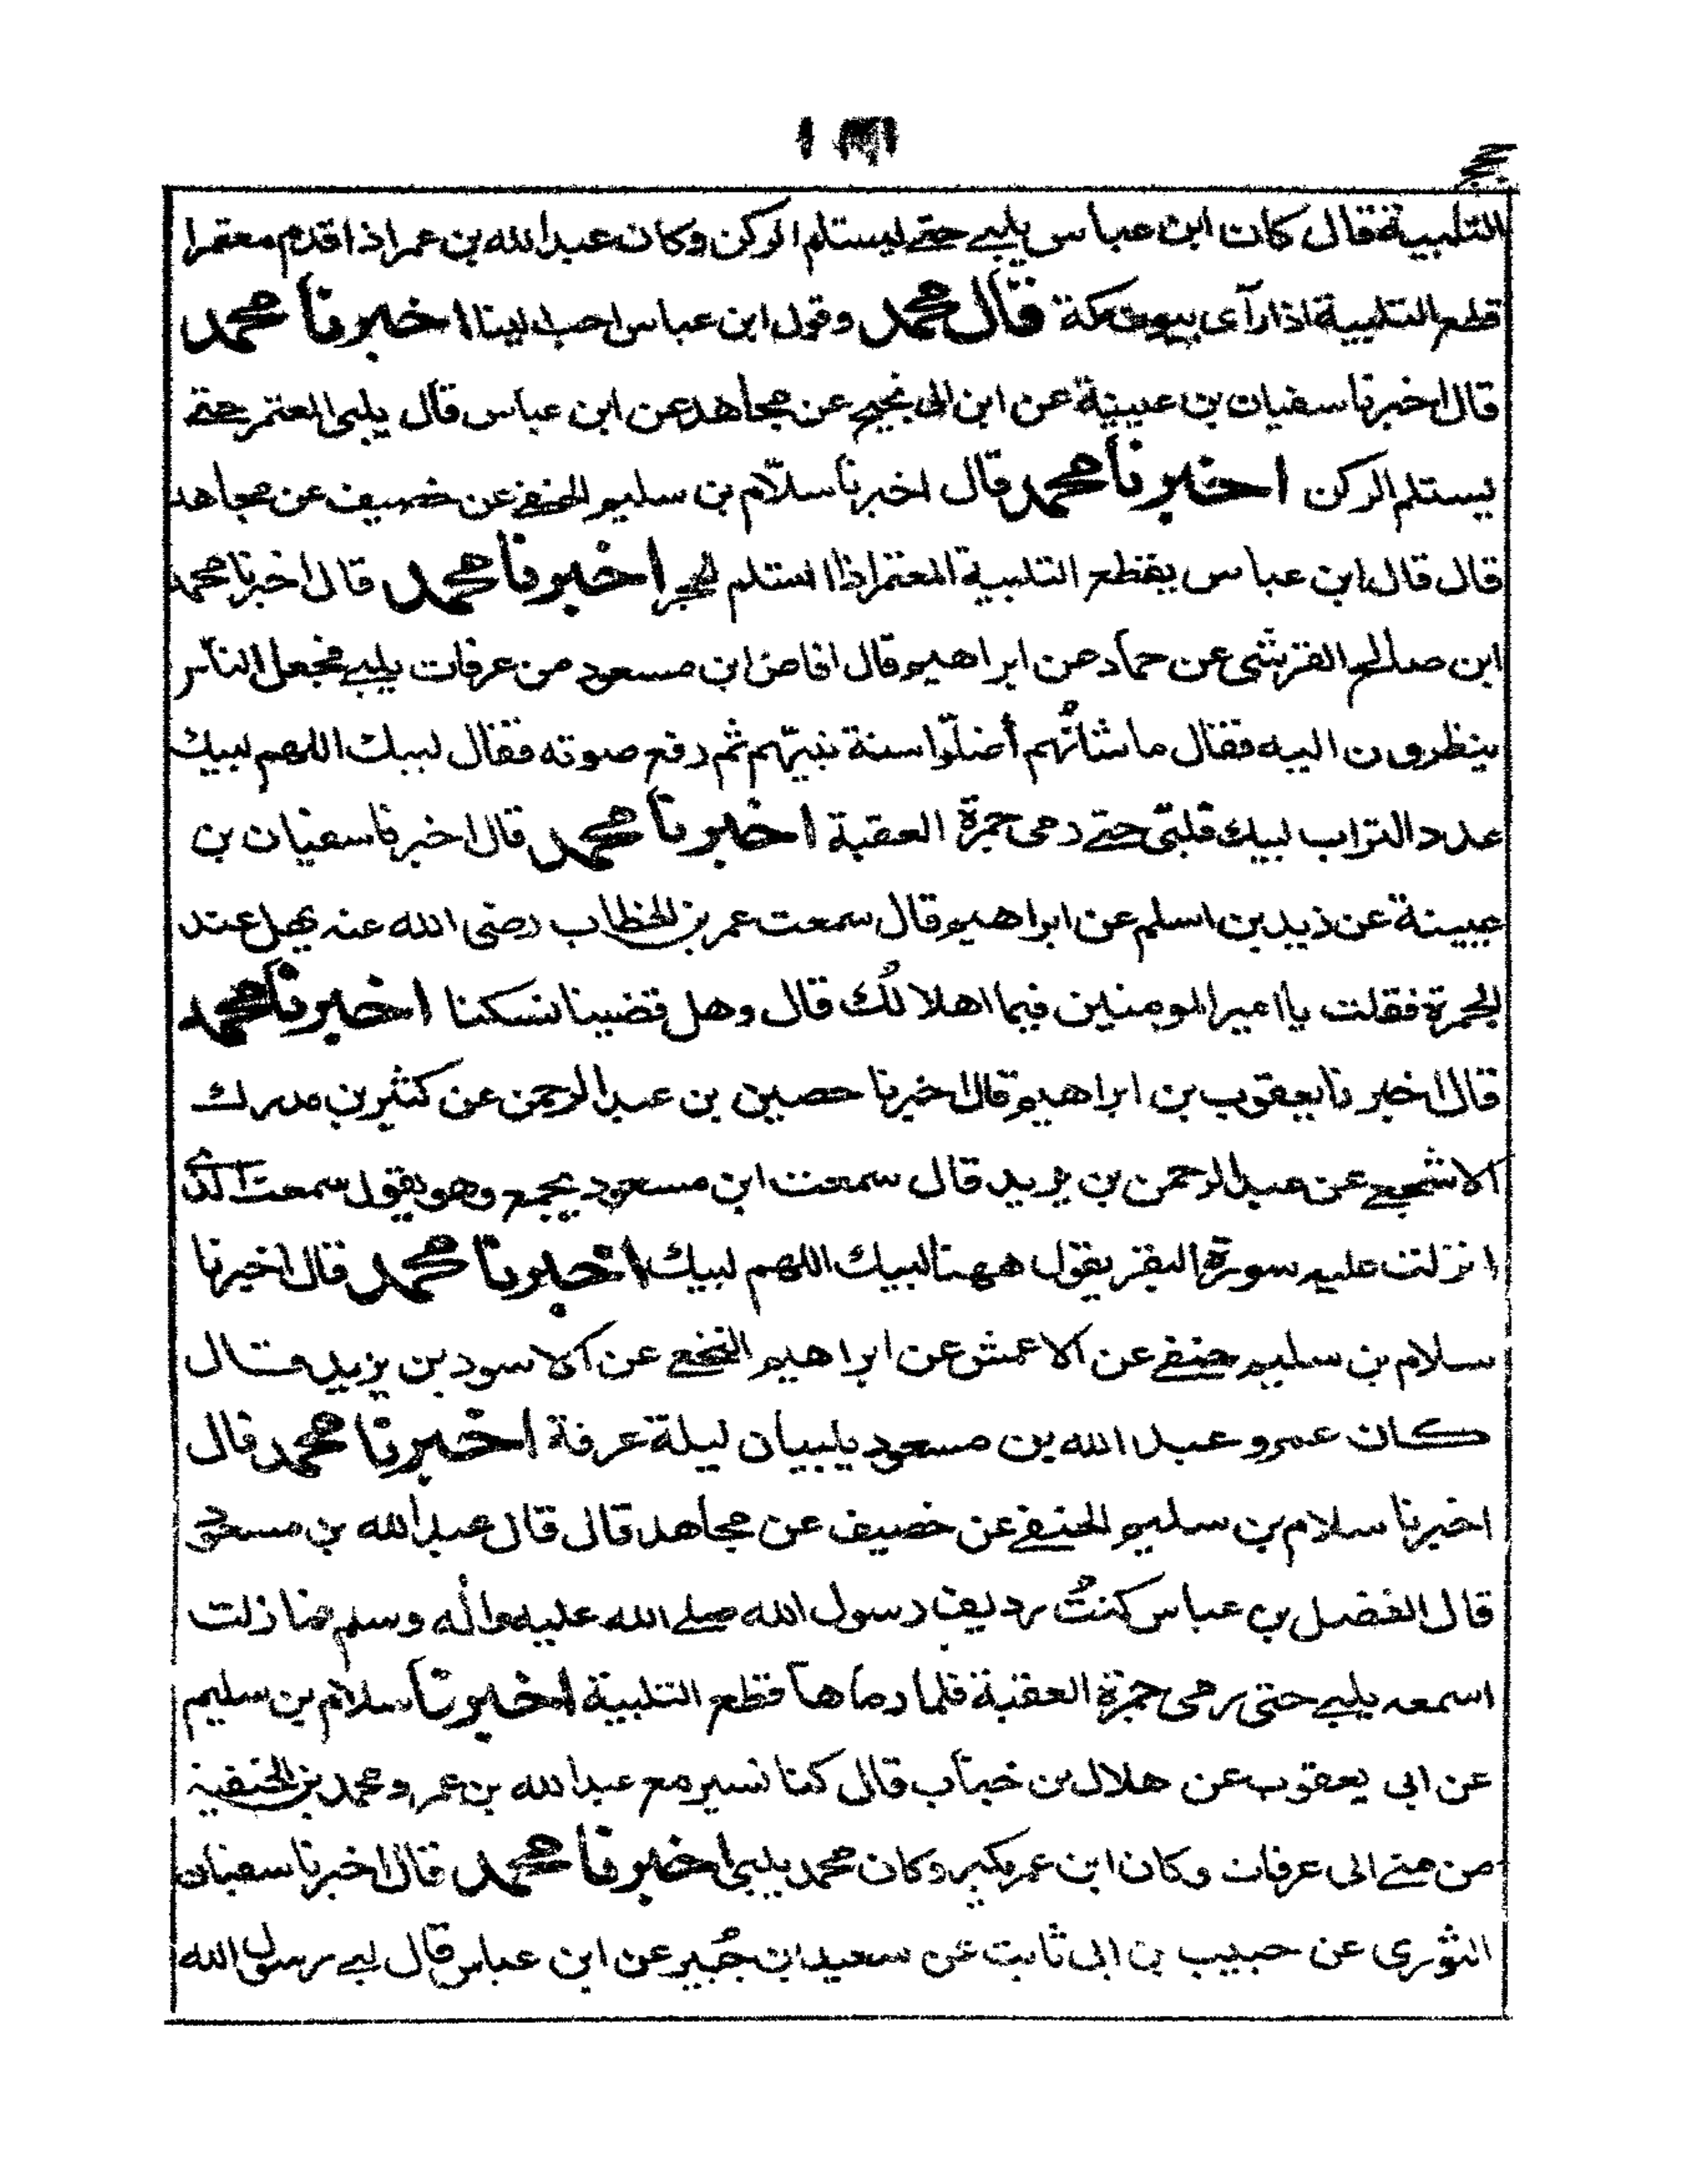 حج
التلبية فقال كان ابن عباس يلبى حتى يستلم الركن وكان عبد الله بن عمر اذا قدم معتمرا
قطع التلبية اذا رآى بيوت مكة قال محمد وقول ابن عباس احب الينا اخبرنا محمد
قال اخبرنا سفيان بن عيينة عن ابن ابى نجيح عن مجاهد عن ابن عباس قال يلبى المعتمر حتى
يستلم الركن اخبرنا محمد قال اخبرنا سلّام بن سليم الحنفى عن خصيف عن مجاهد
قال قال ابن عباس يقطع التلبية المعتمر اذا استلم الحجر اخبرنا محمد قال اخبرنا محمد
ابن صالح القرشى عن حماد عن ابراهيم قال افاض ابن مسعود من عرفات يلبى فجعل الناس
ينظرون اليه فقال ما شأنهم أضلّوا سنة نبيّهم ثم رفع صوته فقال لبيك اللهم لبيك
عدد التراب لبيك فلبى حتى رمى جمرة العقبة اخبرنا محمد قال اخبرنا سفيان بن
عيينة عن زيد بن اسلم عن ابراهيم قال سمعت عمر بن الخطاب رضى الله عنه يهل عند
الجمرة فقلت يا امير المومنين فيما اهلالك قال وهل قضينا نسكنا اخبرنا محمد
قال اخبرنا يعقوب بن ابراهيم قال اخبرنا حصين بن عبد الرحمن عن كثير بن مدرك
الاشجعى عن عبد الرحمن بن يزيد قال سمعت ابن مسعود بجمع وهو يقول سمعت الذى
انزلت عليه سورة البقر يقول ههنا لبيك اللهم لبيك اخبرنا محمد قال اخبرنا
سلام بن سليم حنفى عن الاعمش عن ابراهيم النخعى عن الاسود بن يزيد قال
كان عمر وعبد الله بن مسعود يلبيان ليلة عرفة اخبرنا محمد قال
اخبرنا سلام بن سليم الحنفى عن خصيف عن مجاهد قال قال عبد الله بن مسعود
قال الفضل بن عباس كنتُ رديف رسول الله صلى الله عليه واله وسلم فما زلت
اسمعه يلبى حتى رمى جمرة العقبة فلما رماها قطع التلبية اخبرنا سلام بن سليم
عن ابى يعقوب عن هلال بن خباب قال كنا نسير مع عبد الله بن عمر ومحمد بن الحنفية
من منى الى عرفات وكان ابن عمر يكبر وكان محمد يلبى اخبرنا محمد قال اخبرنا سفيان
الثورى عن حبيب بن ابى ثابت عن سعيد بن جُبير عن ابن عباس قال لبى رسول الله